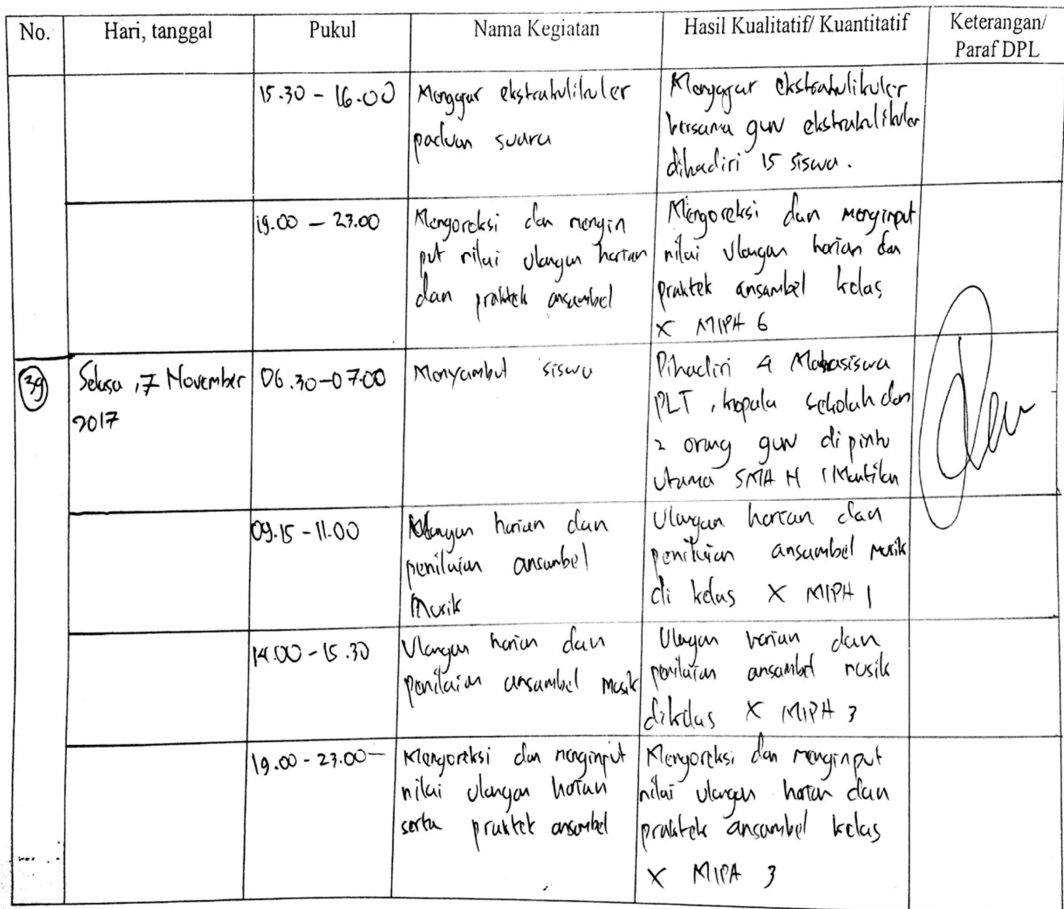 No. Hari, tanggal Pukul Nama Kegiatan Hasil Kualitatif/ Kuantitatif Keterangan/
Paraf DPL
15.30 - 16.00
Mengajar ekstrakulikuler
paduan suara
Mengajar ekstrakulikuler
bersama guru ekstrakulikuler
dihadiri 15 siswa.
19.00 - 23.00
Mengoreksi dan mengin
put nilai ulangan harian
dan praktek ansambel
Mengoreksi dan menginput
nilai ulangan harian dan
praktek ansambel kelas
X MIPA 6
39
Selasa, 7 November
2017
06.30-07.00
Menyambut siswa
Dihadiri 4 Mahasiswa
PLT, kepala sekolah dan
2 orang guru di pintu
utama SMA N 1 Muntilan
09.15 - 11.00
Ulangan harian dan
penilaian ansambel
Musik
Ulangan harian dan
penilaian ansambel musik
di kelas X MIPA 1
14.00 - 15.30
Ulangan harian dan
penilaian ansambel musik
Ulangan harian dan
penilaian ansambel musik
dikelas X MIPA 3
19.00 - 23.00
Mengoreksi dan menginput
nilai ulangan harian
serta praktek ansambel
Mengoreksi dan menginput
nilai ulangan harian dan
praktek ansambel kelas
X MIPA 3